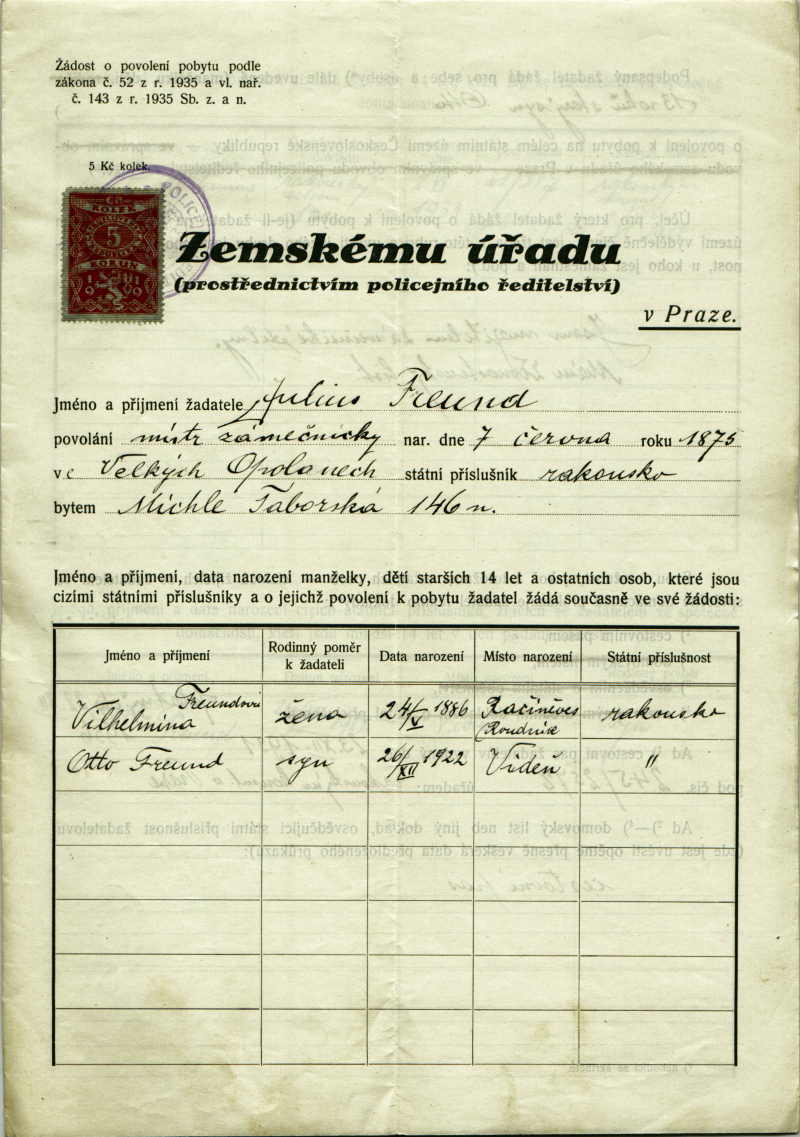 Žádost o povolení pobytu podle
zákona č. 52 z r. 1935 a vl. nař.
č. 143 z r. 1935 Sb. z. a n.
5 Kč kolek.
KOLEK
5
KORUN
Zemskému úřadu
(prostřednictvím policejního ředitelství)
v Praze.
Jméno a příjmení žadatele Julius Freund
povolání mistr zámečnický nar. dne 7 června roku 1875
ve Velkých Opolanech státní příslušník rakousko
bytem Michle Táborská 146 n.
Jméno a příjmení, data narození manželky, dětí starších 14 let a ostatních osob, které jsou
cizími státními příslušníky a o jejichž povolení k pobytu žadatel žádá současně ve své žádosti:
Jméno a příjmení Rodinný poměr k žadateli Data narození Místo narození Státní příslušnost
Vilhelmina Freundová žena 24/V 1886 Račiněves (Roudnik rakousko
Otto Freund syn 26/XII 1922 Vídeň "